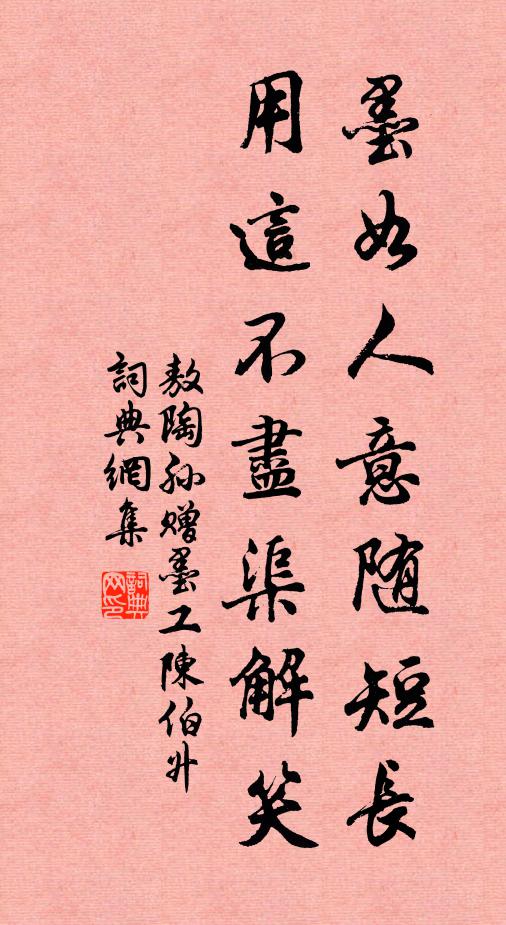 墨如人意随短長
用這不盡渠解笑
敖陶孙赠墨工陳伯升
詞典網集
詞典網印